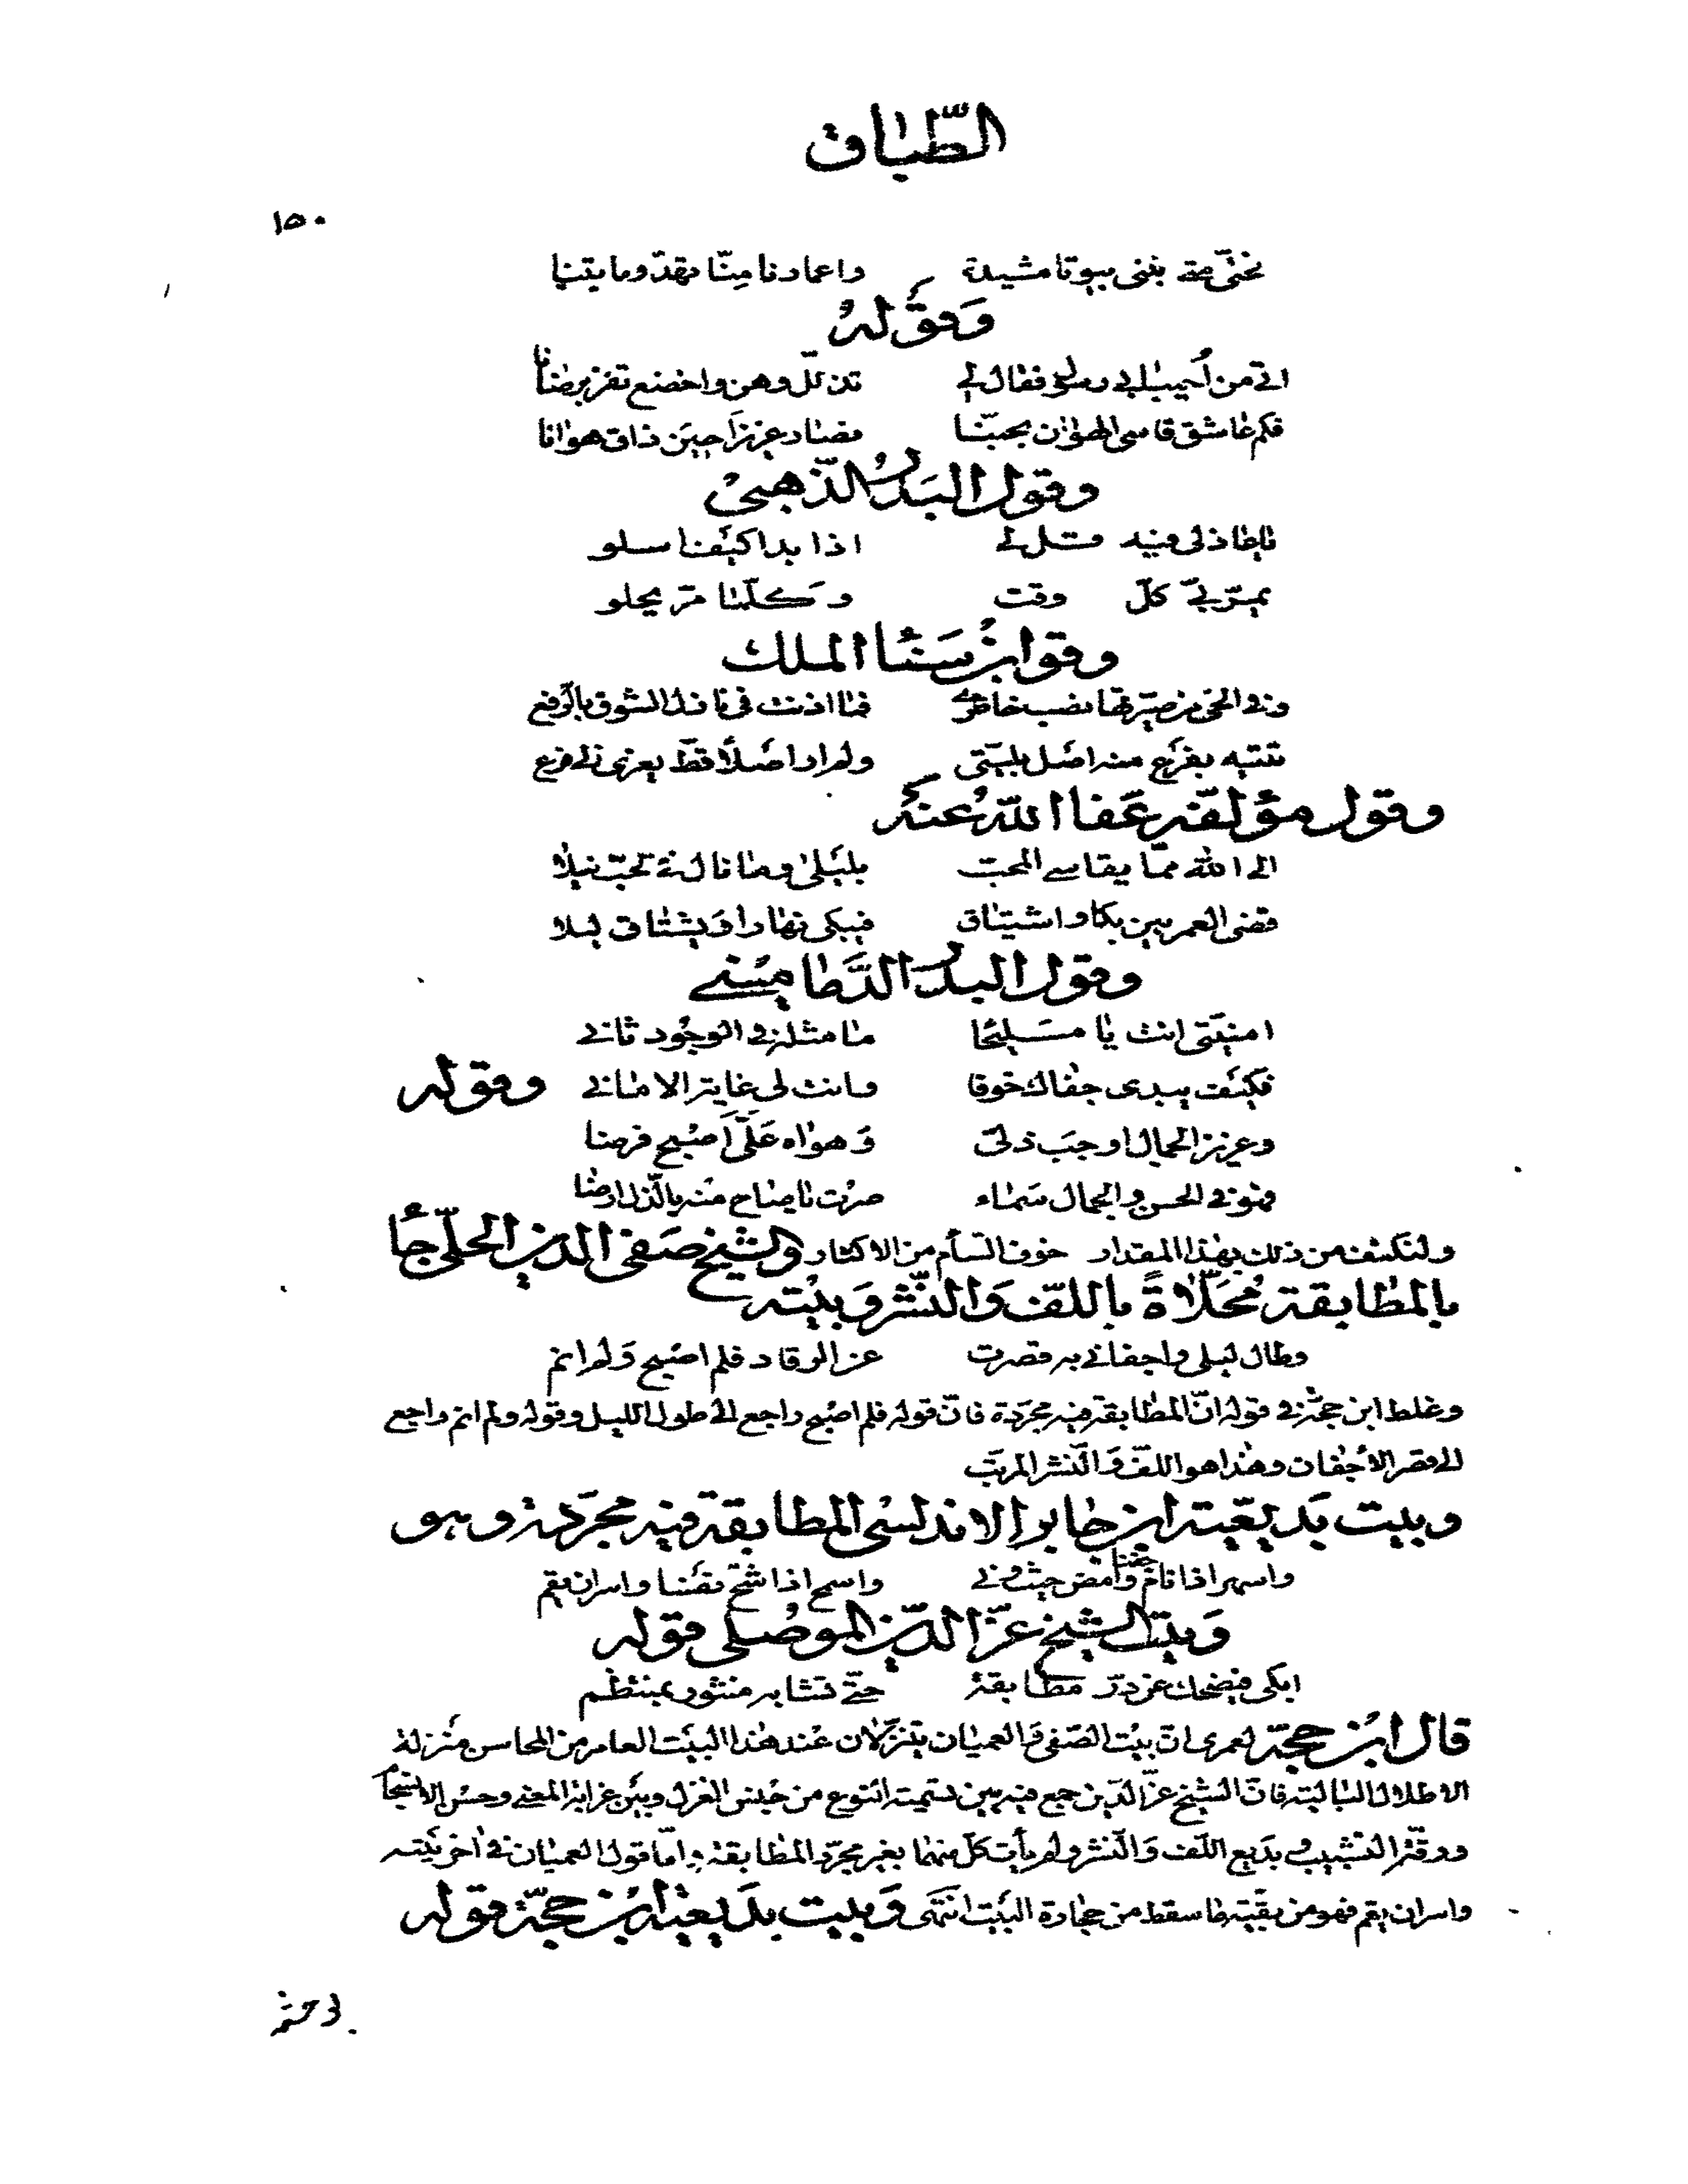 الطّباق
١٥٠
متى نبنى بيوتا مشيدة واعمارنا منّا تهدّ وما بقينا
وقوله
اتى من أحبابى رسول فقال لى تذلّل وهن واخضع تفز برضانا
فكم عاشق قاسى الهوان بحبّنا فصار عزيزا حين ذاق هوانا
وقول البدر الذّهبىّ
ياعاذلى فيه قل لى اذا بدا كيف اسلو
يمرّ بى كلّ وقت وكلّما مرّ يحلو
وقو ابن سنا الملك
وفى الحىّ من صيّرتها نصب خاطرى فما اذنت فى نازل الشوق بالرّفع
تتيه بفرع منه اصل بليّتى ولم ار اصلا قطّ يعزى الى فرع
وقول مؤلّفه عفا اللّه عنه
الى اللّه ممّا يقاسى المحبّ بليلى وما نال من حبّ نيلا
قضى العمر بين بكا واشتياق فيبكى نهارا ويشتاق ليلا
وقول البدر الدّمامينى
امنيّتى انت يا مليحا ما مثله فى الوجود ثانى
فكيف يبدى جفاك خوفا وانت لى غاية الامانى وقوله
وعزيز الجمال اوجب ذلّى وهواه علىّ اصبح فرضا
فهو فى الحسن والجمال سماء صرت ياصاح منه بالذّل ارضا
ولنكتف من ذلك بهذا المقدار خوف التسأم من الاكثار والشيخ صفى الدين الحلّى جأ
بالمطابقة محلّاة باللفّ والنّشر وبيته
وطال ليلى واجفانى به قصرت عن الرقاد فلم اصبح ولم انم
وغلط ابن حجّة فى قوله انّ المطابقة فيه مجرّدة فانّ قوله فلم اصبح راجع الى طول الليل وقوله ولم انم راجع
الى قصر الأجفان وهذا هو اللفّ والنّشر المرتّب
وبيت بديعيّة ابن جابر الاندلسى المطابقة فيه مجرّدة وهو
واسهر اذا نام وامض حيث ونى واسمح اذا شحّ نفسا واسر ان يقم
وبيت الشيخ عزّ الدّين الموصلى قوله
ابكى فيضحك عن درّ مطابقة حتّى تشابه منثور بمنتظم
قال ابن حجّة لعمرى انّ بيت الصّفى والعميان يتنزّلان عند هذا البيت العامر من المحاسن منزلة
الاطلال البالية فانّ الشيخ عزّ الدّين جمع فيه بين تسمية النّوع من جنس الغزل وبين غرابة المعنى وحسن الانسجا
ورقّة التشبيب وبديع اللّف والنّشر ولم يأت كلّ منهما بغير مجرّد المطابقة وامّا قول العميان فى اخر بيته
واسر ان يقم فهو من بقيّة ما سقط من حجارة البيت انتهى وبيت بديعيّة ابن حجّة قوله